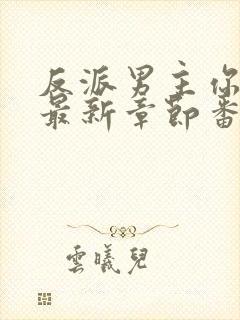 反派男主你
最新章节番
雲曦兒